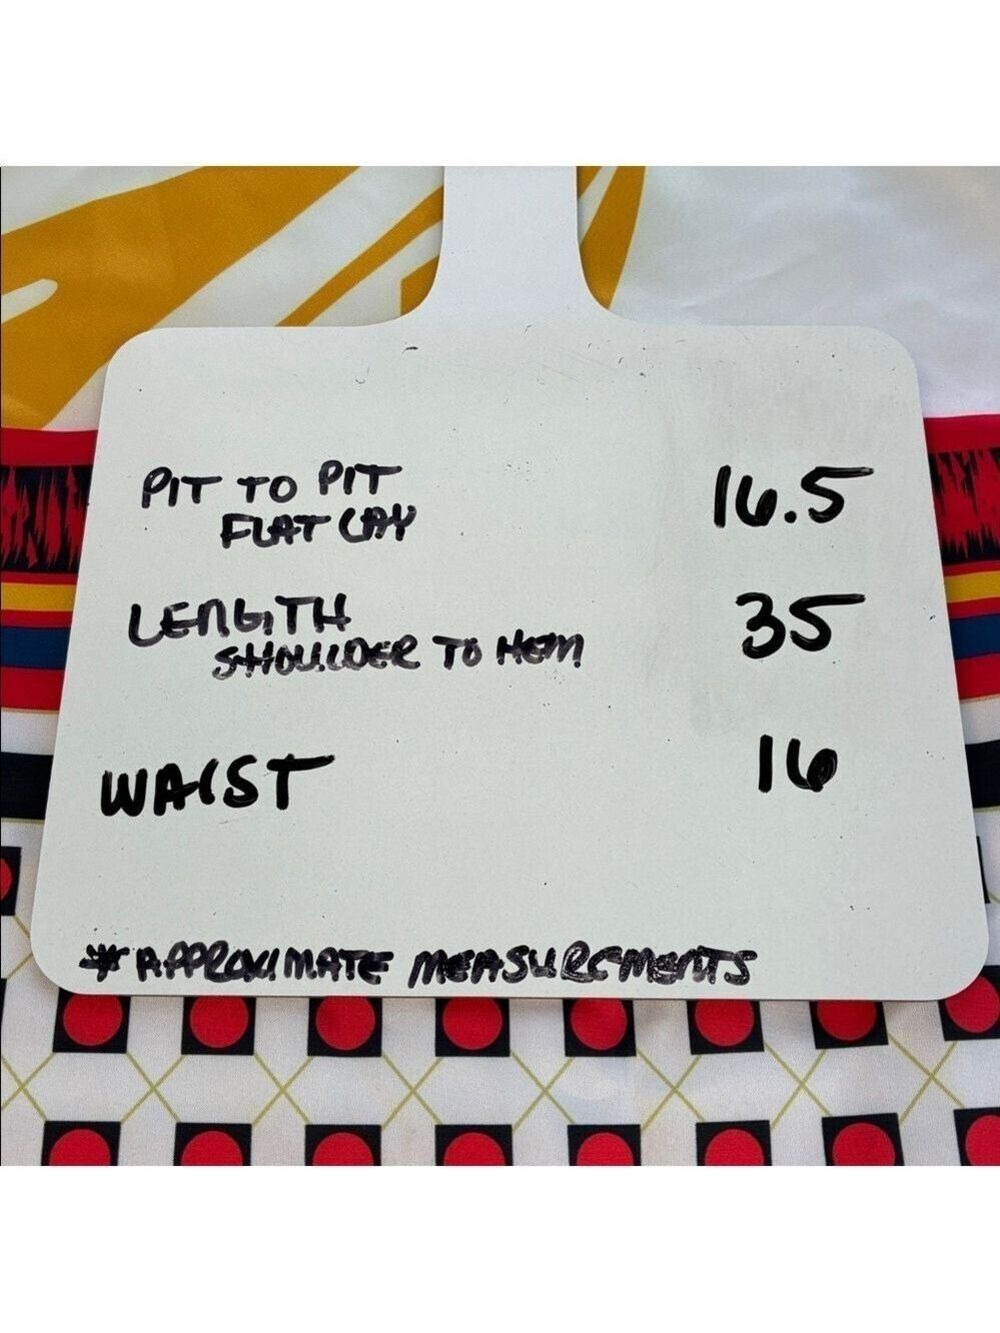 PIT TO PIT 16.5
FLAT LAY
LENGTH 35
SHOULDER TO HEM
WAIST 16
* APPROXIMATE MEASUREMENTS